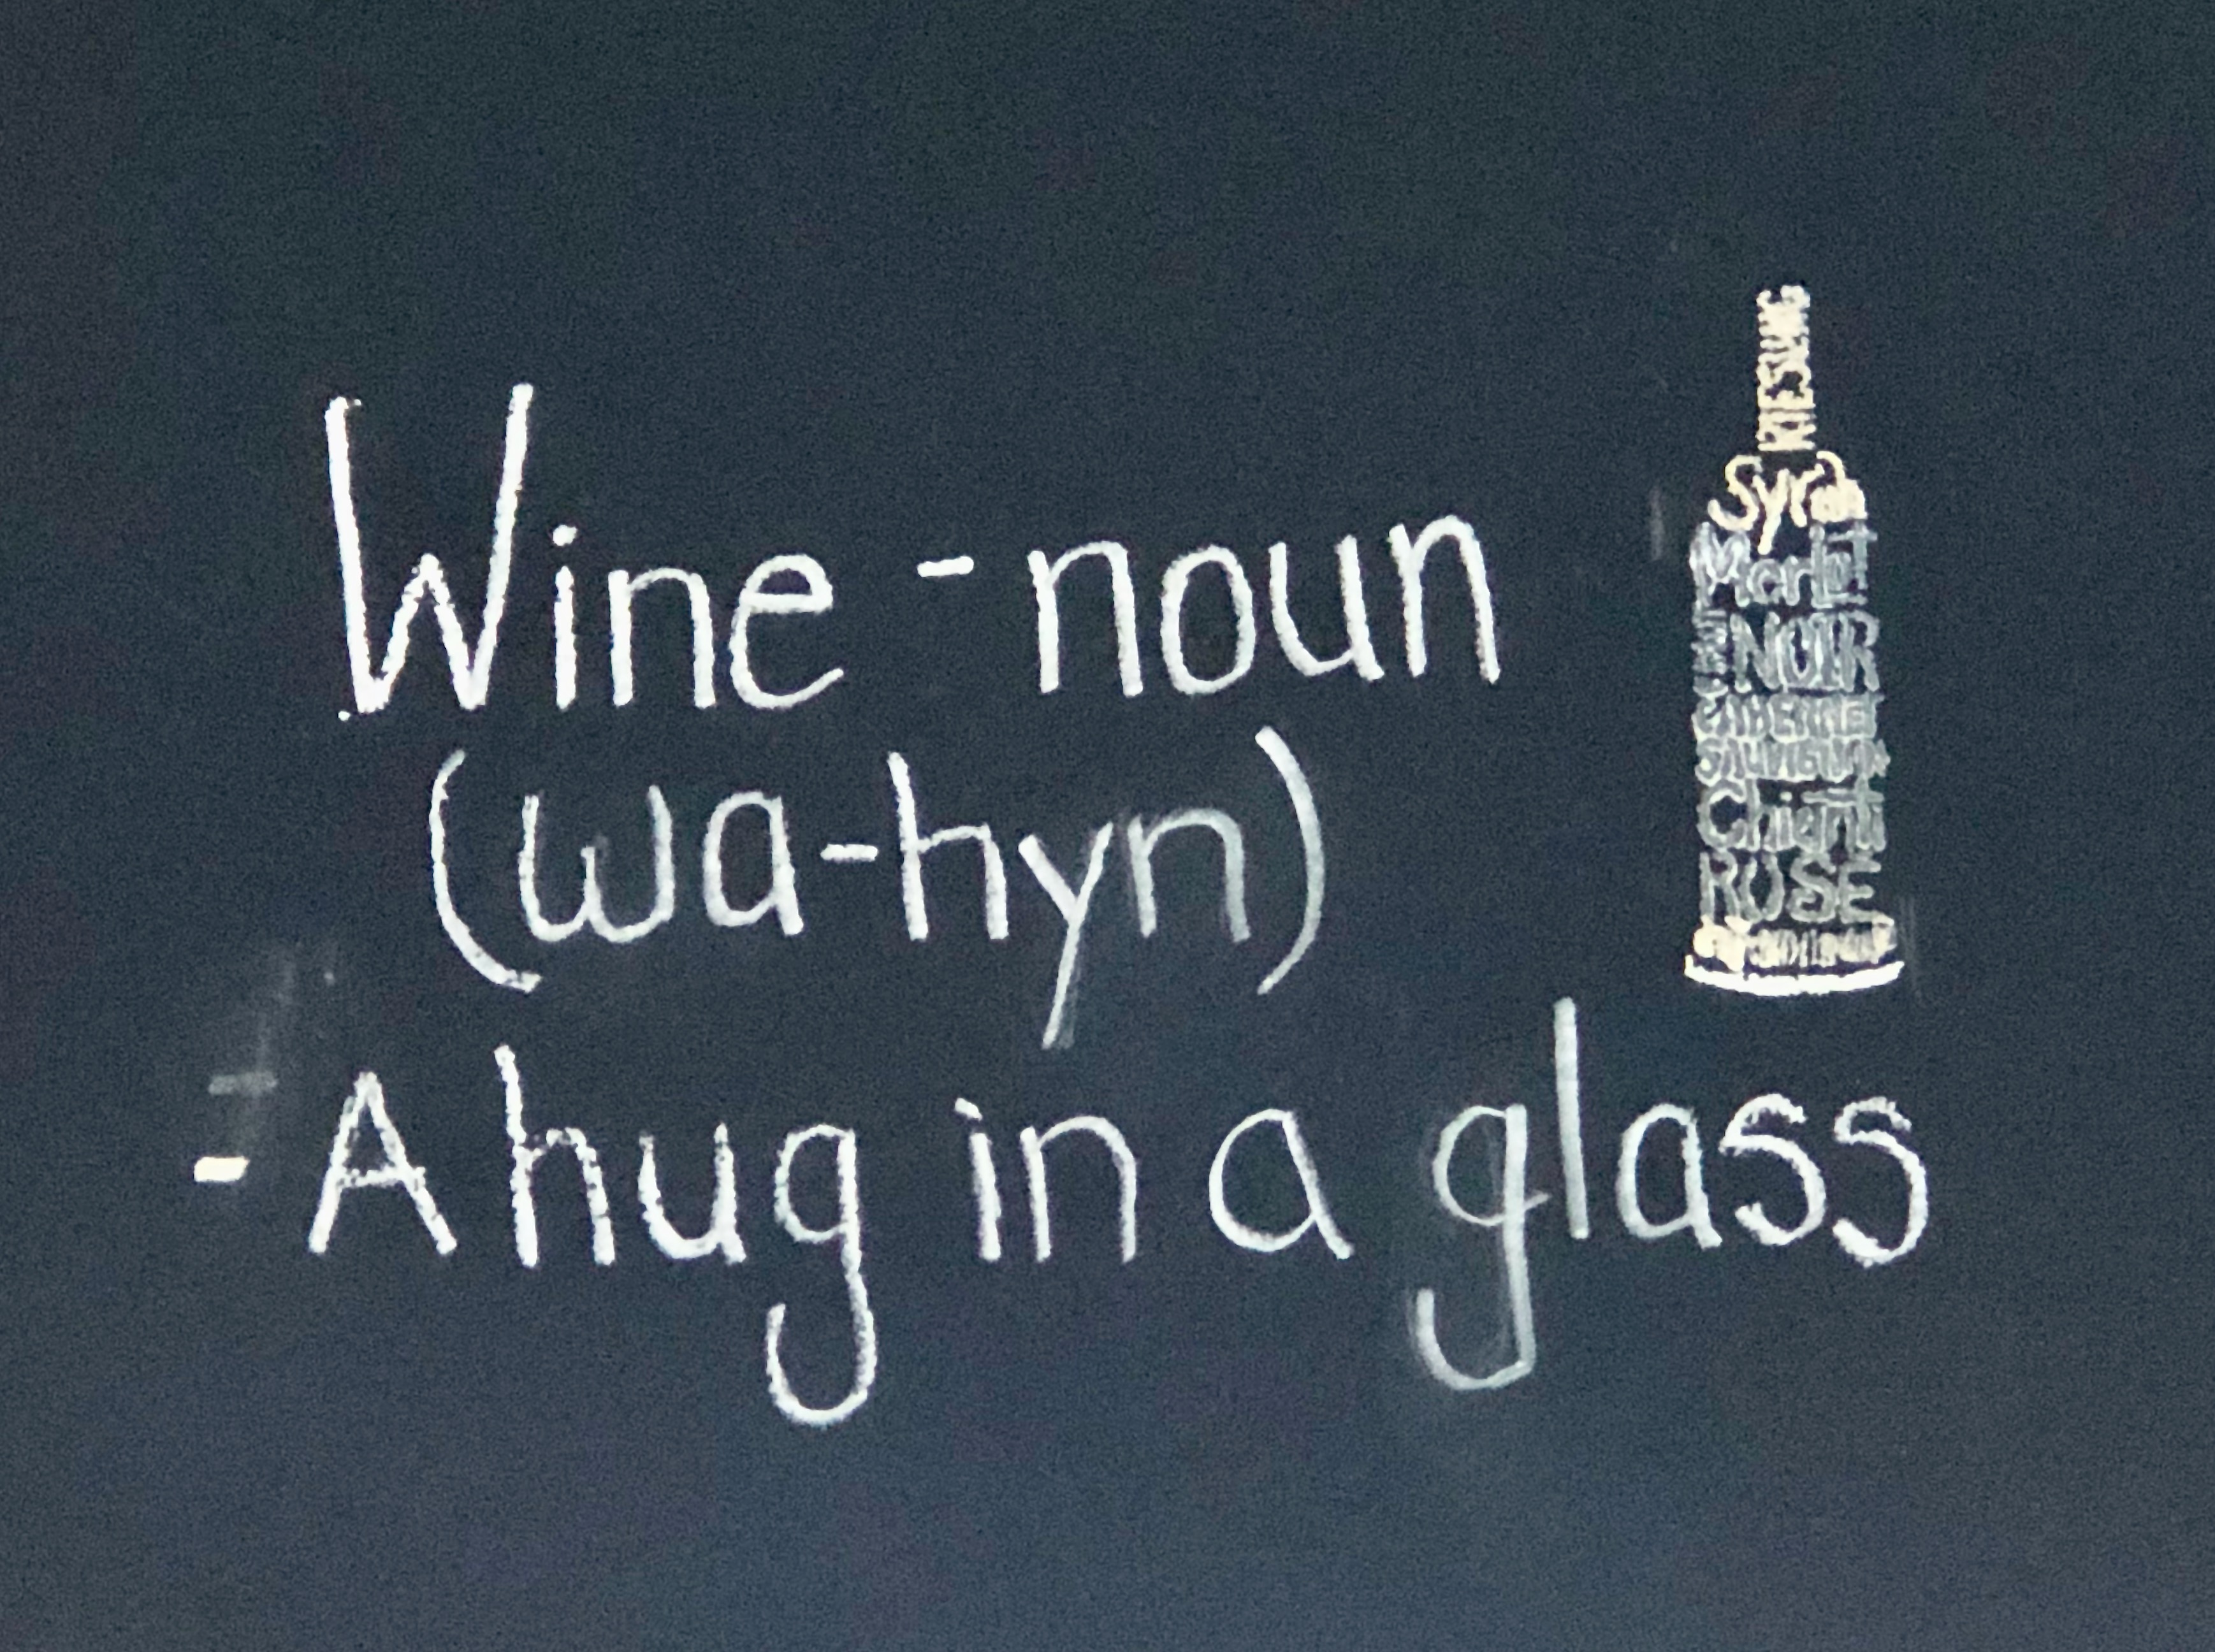 Wine - noun
(wa-hyn)
- A hug in a glass
RIESLING
Syrah
MerloT
NOIR
CABERNET
SAUVIGNON
Chianti
ROSE